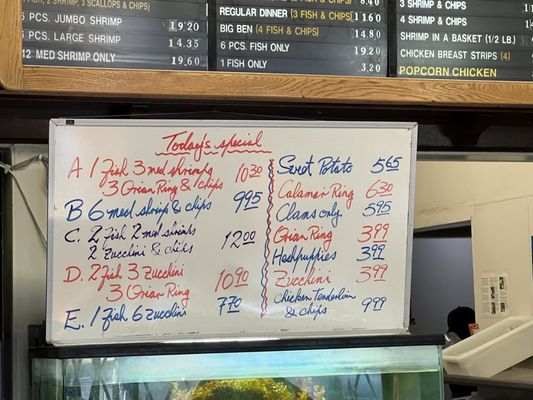 FISH, 2 SHRIMP, 3 SCALLOPS & CHIPS)
PCS. JUMBO SHRIMP 19.20
6 PCS. LARGE SHRIMP 14.35
12 MED SHRIMP ONLY 19.60
(FISH & CHIPS) 8.40
REGULAR DINNER (3 FISH & CHIPS) 11.60
BIG BEN (4 FISH & CHIPS) 14.80
6 PCS. FISH ONLY 19.20
1 FISH ONLY 3.20
3 SHRIMP & CHIPS
4 SHRIMP & CHIPS
SHRIMP IN A BASKET (1/2 LB.)
CHICKEN BREAST STRIPS (4
POPCORN CHICKEN
Today's special
A 1 Fish 3 med shrimps 10.30
3 Onian Ring & chips
B 6 med shrip & chips 9.95
C. 2 Fish 2 med shrimps 12.00
2 Zucchini & chips
D. 2 Fish 3 Zucchini 10.90
3 Onian Ring
E. 1 Fish 6 Zucchini 7.70
Sweet Potato 5.65
Calamari Ring 6.30
Clams only. 5.95
Onian Ring 3.99
Hashpuppies 3.99
Zucchini 3.99
Chicken Tenderloin
& chips 9.99